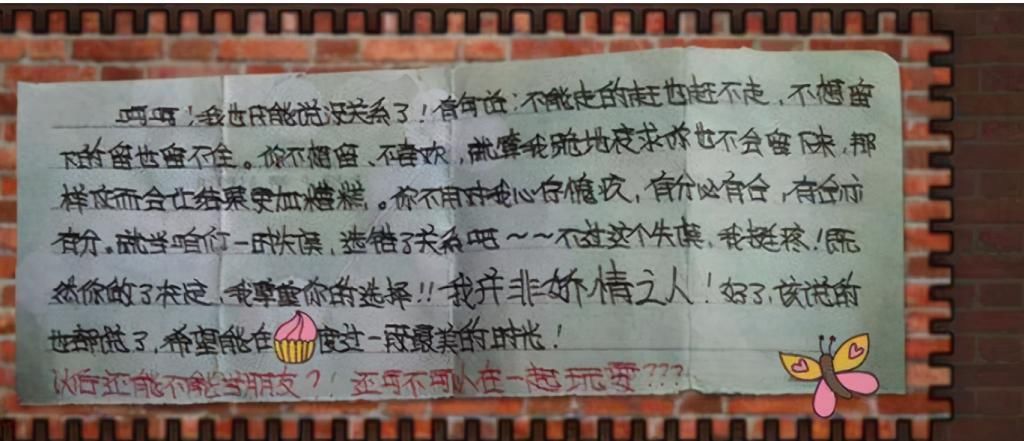 呵呵！我也只能说没关系了！有句话：不能走的赶也赶不走，不想留
下的留也留不全。你不想留、不喜欢，就算我跪地哀求你也不会留下来，那
样反而会让结果更加糟糕。你不用对我心存愧疚，有分必有合，有合亦
有分。就当咱们一时失误，选错了关系吧～～不过这个失误，我挺疼！既
然你做了决定，我尊重你的选择!! 我并非娇情之人！好了，该说的
也都说了，希望能在 度过一段最美的时光！
以后还能不能当朋友？！还可不可以在一起玩耍???